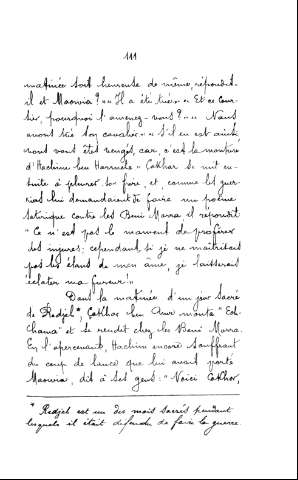 111
matinée soit heureuse de même, répondit-
il et Maowia? " " Il a été tué " " Et ce cour-
sier, pourquoi l'amenez-vous? " " Nous
avons tué son cavalier " " S'il en est ainsi,
vous êtes vengés, car, c'est la monture
d'Hachime ben Harmela " Cakhar se mit en-
suite à pleurer son frère, et, comme les guer-
riers lui demandaient de faire un poème
satirique contre les Beni Marra, il répondit
" Ce n'est pas le moment de proférer
des injures; cependant si je ne maîtrisais
pas les élans de mon âme, je laisserais
éclater ma fureur! "
Dans la matinée d'un jour sacré
de Redjel*, Cakhar ben Amr monta " Ech-
Chama" et se rendit chez les Beni Marra.
En l'apercevant, Hachim encore souffrant
du coup de lance que lui avait porté
Maowia, dit à ses gens. " Voici Cakhar,
* Redjel est un des mois sacrés pendant
lesquels il était défendu de faire la guerre.